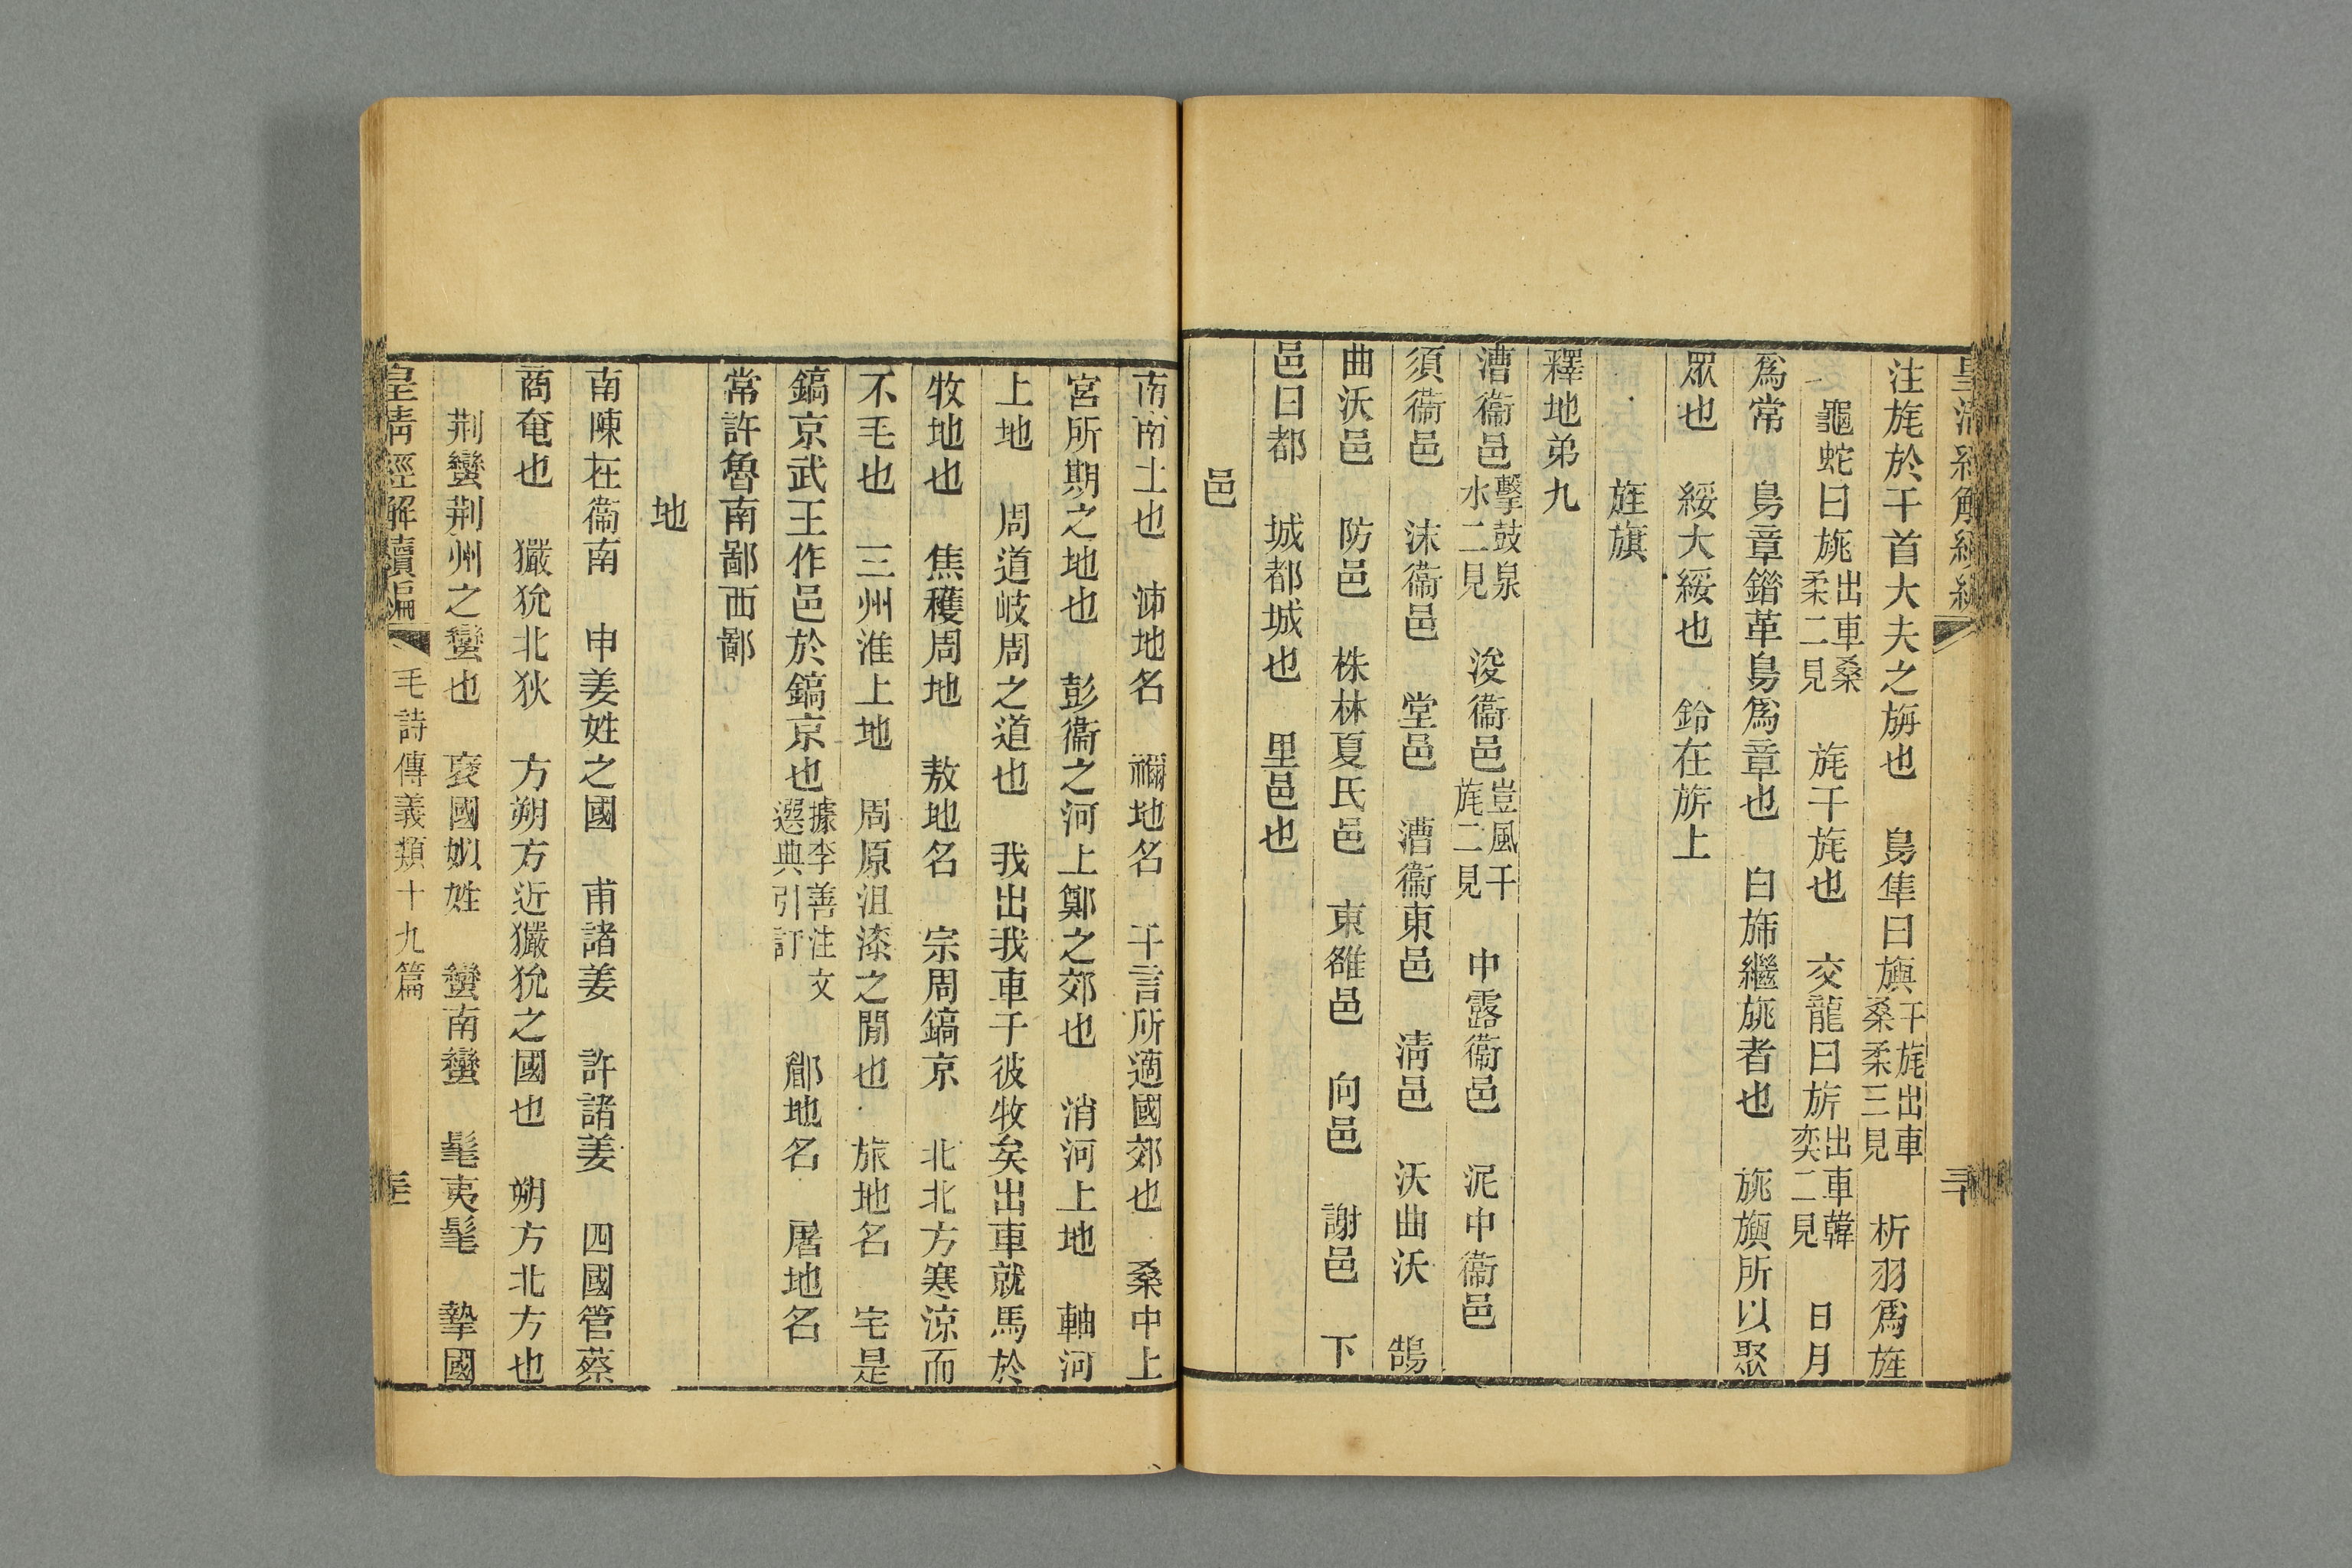 皇清經解續編
三十
注旄於干首大夫之旃也　鳥隼曰旟干旄出車桑柔三見　析羽爲旌
龜蛇曰旐出車桑柔二見　旄干旄也　交龍曰旂出車韓奕二見　日月
爲常　鳥章錯革鳥爲章也　白斾繼旐者也　旐旟所以聚
眾也　綏大綏也　鈴在旂上
旌旗
釋地弟九
漕衞邑擊鼓泉水二見　浚衞邑豈風干旄二見　中露衞邑　泥中衞邑
須衞邑　沬衞邑　堂邑　漕衞東邑　淸邑　沃曲沃　鵠
曲沃邑　防邑　株林夏氏邑　東雒邑　向邑　謝邑　下
邑曰都　城都城也　里邑也
邑
南南土也　泲地名　禰地名　干言所適國郊也　桑中上
宮所期之地也　彭衞之河上鄭之郊也　消河上地　軸河
上地　周道岐周之道也　我出我車于彼牧矣出車就馬於
牧地也　焦穫周地　敖地名　宗周鎬京　北北方寒涼而
不毛也　三州淮上地　周原沮漆之閒也　旅地名　宅是
鎬京武王作邑於鎬京也據李善注文選典引訂　郿地名　屠地名
常許魯南鄙西鄙
地
南陳在衞南　申姜姓之國　甫諸姜　許諸姜　四國管蔡
商奄也　玁狁北狄　方朔方近玁狁之國也　朔方北方也
荆蠻荆州之蠻也　褒國姒姓　蠻南蠻　髦夷髦　摯國
皇清經解續編
毛詩傳義類十九篇